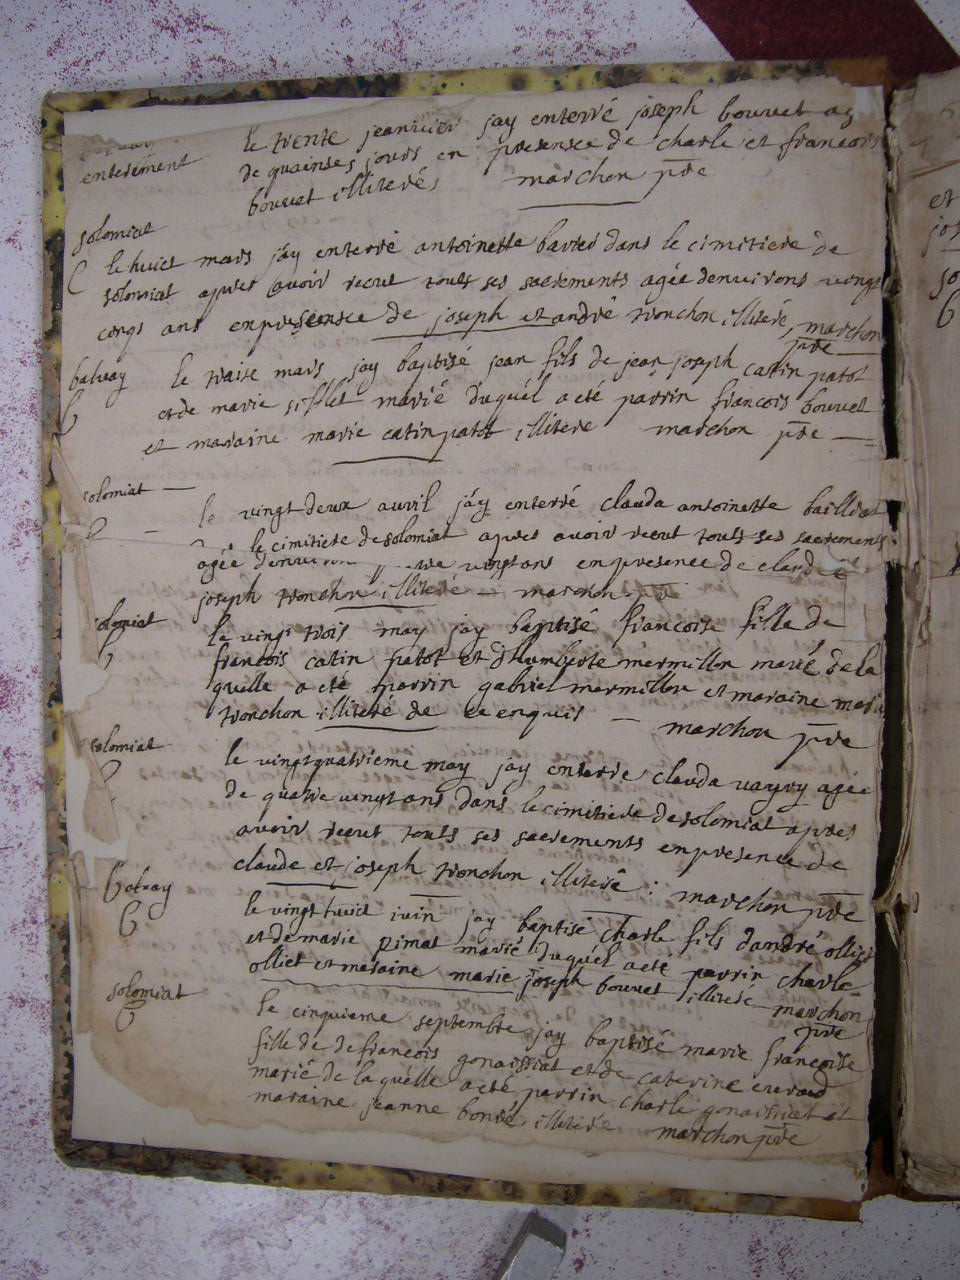 enterement
le trente jeanvier jay enterré joseph bouvet ag
de quainses jours en presensce de charle et francois
bouvet illiterés marchon pre
solomiat
le huict mars jay enterré antoinette bavted dans le cimitiere de
solomiat apres avoir receut touts ses sacrements agée denvirons vingt
cenqs ans en presensce de joseph et andré tronchon illiteré marchon
pre
balvay le traise mars jay baptisé jean fils de jean joseph cattin patot
et de marie sifflet marié duquél a eté parrin francois bouvet
et maraine marie catin patot illiteré marchon pre
solomiat
le vingt deux avril jay enterré clauda antoinette bailliat
le cimitiere de solomiat apres avoir receut touts ses sacrements
agée denviron vingt ans en presence de claude
joseph tronchon illiteré marchon pre
solomiat
le vingt trois may jay baptisé francoise fille de
francois catin patot et dhumberte mermillon marié de la
quelle a eté parrin gabriel mermillon et maraine marie
tronchon illiteré de ce enquis marchon pre
solomiat
le vingt quatrieme may jay enterré clauda vayvy agée
de quatre vingt ans dans le cimitiere de solomiat apres
avoir receut touts ses sacrements en presence de
claude et joseph tronchon illiteré : marchon pre
balvay
le vingt huict iuin jay baptisé charle fils dandré olliet
et de marie pimat marié duquél a eté parrin charle
olliet et maraine marie joseph bouvet illiteré marchon
pre
solomiat
le cinquieme septembre jay baptisé marie francoise
fille de de francois gonaissiat et de caterine evraud
marié de la quélle a eté parrin charle gonaissiat et
maraine jeanne bondé illiteré marchon pre